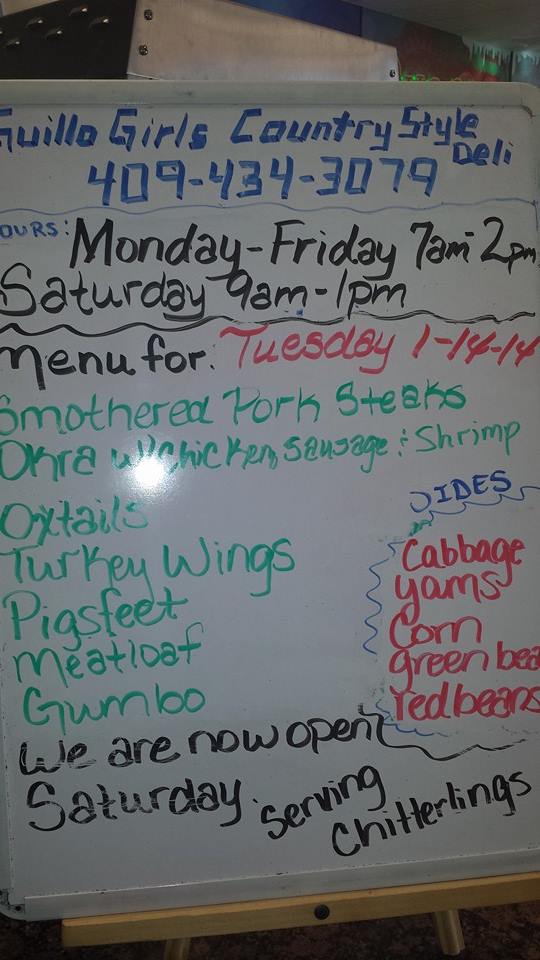 Guillo Girls Country Style
Deli
409-434-3079
OURS: Monday-Friday 7am-2pm
Saturday 9am-1pm
Menu for: Tuesday 1-14-14
Smothered Pork Steaks
Okra w/Chicken, Sausage & Shrimp
Oxtails
Turkey Wings
Pigsfeet
Meatloaf
Gumbo
SIDES
Cabbage
yams
Corn
green bea
redbeans
We are now open
Saturday. Serving
Chitterlings